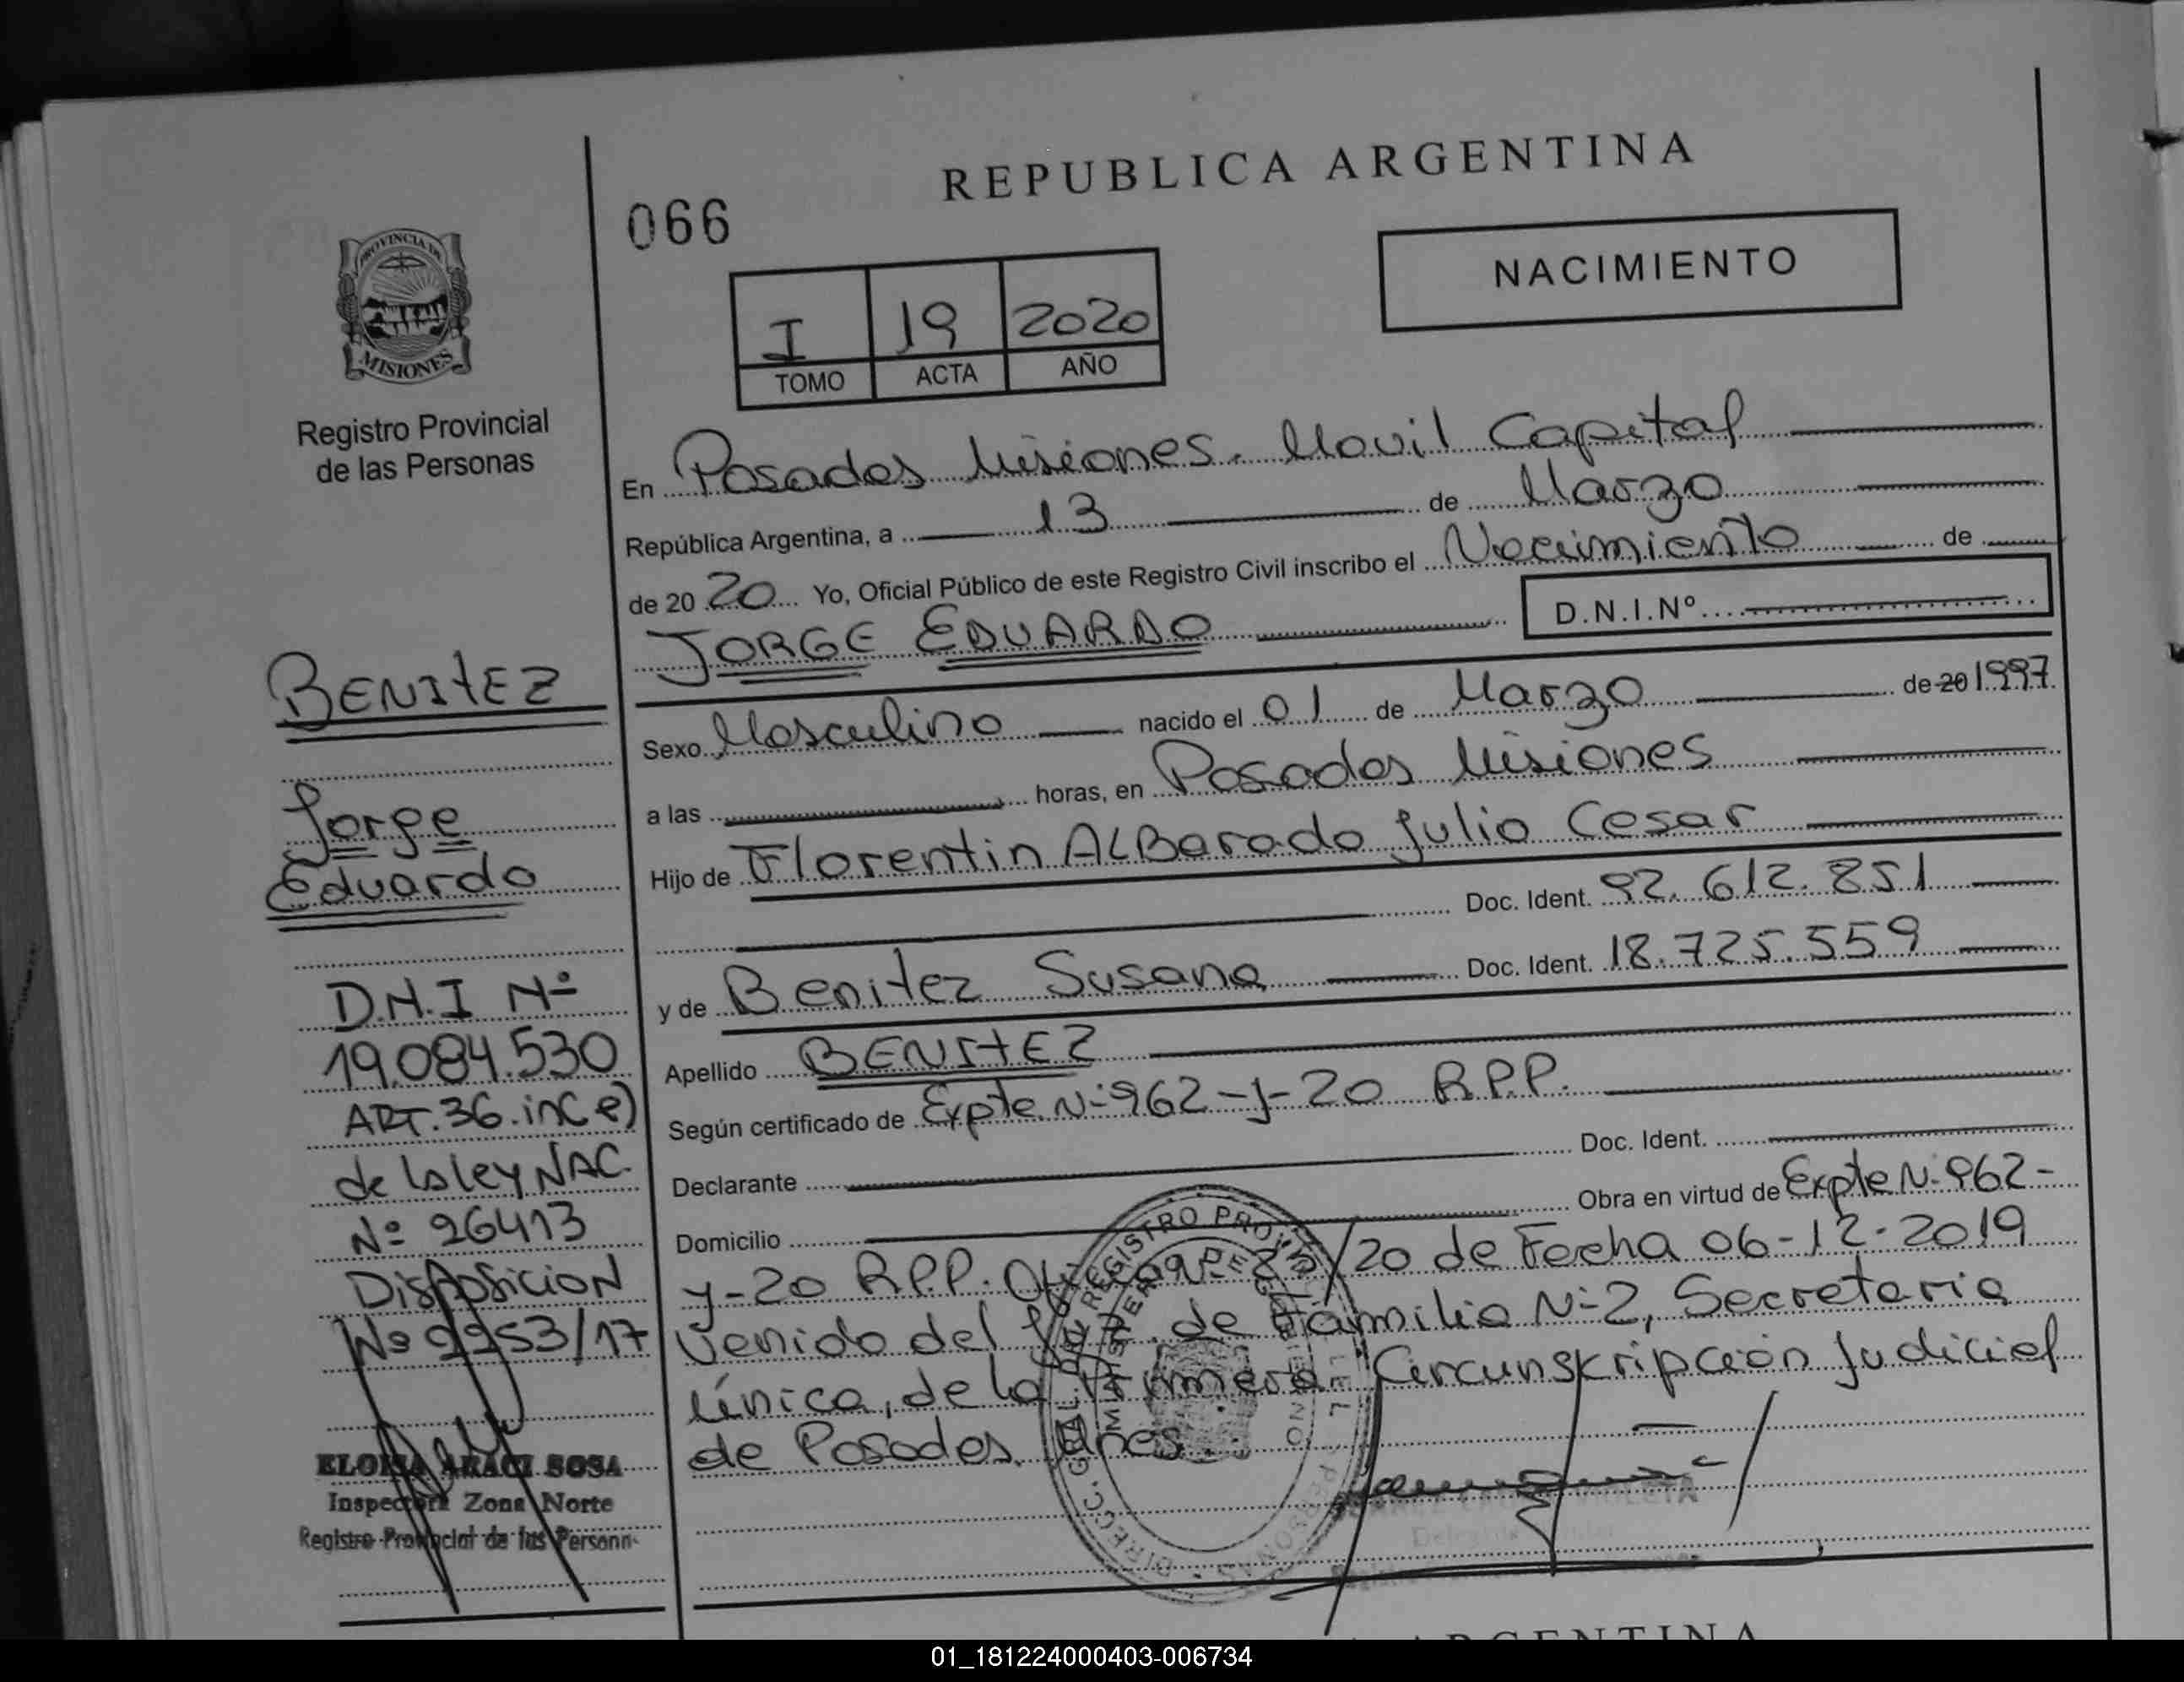 REPUBLICA ARGENTINA
066
NACIMIENTO
I 19 2020
TOMO ACTA AÑO
PROVINCIA DE
MISIONES
Registro Provincial
de las Personas
BENITEZ
Jorge
Eduardo
D.N.I Nº
19.084.530
ART. 36. inc e)
de la ley NAC.
Nº 26413
Disposicion
Nº 9953/17
ELOISA ARACI SOSA
Inspectora Zona Norte
Registro Provincial de las Person
En Posadas Misiones. Movil Capital
República Argentina, a 13 de Marzo
de 2020 Yo, Oficial Público de este Registro Civil inscribo el Nacimiento de
JORGE EDUARDO D.N.I.Nº
Sexo Masculino nacido el 01 de Marzo de 20 1997
a las horas, en Posadas Misiones
Hijo de Florentin ALBarado Julio Cesar
Doc. Ident. 92.612.851
y de Benitez Susana Doc. Ident. 18.725.559
Apellido BENITEZ
Según certificado de Expte. Nº 962-y-20 R.P.P.
Declarante Doc. Ident.
Domicilio Obra en virtud de Expte Nº 962-
y-20 R.P.P. /20 de Fecha 06-12-2019
venido del Juz. de Familia Nº 2, Secretaria
única, de la Primera Circunskripción Judicial
de Posadas. Mnes.
ARGENTINA
01_181224000403-006734